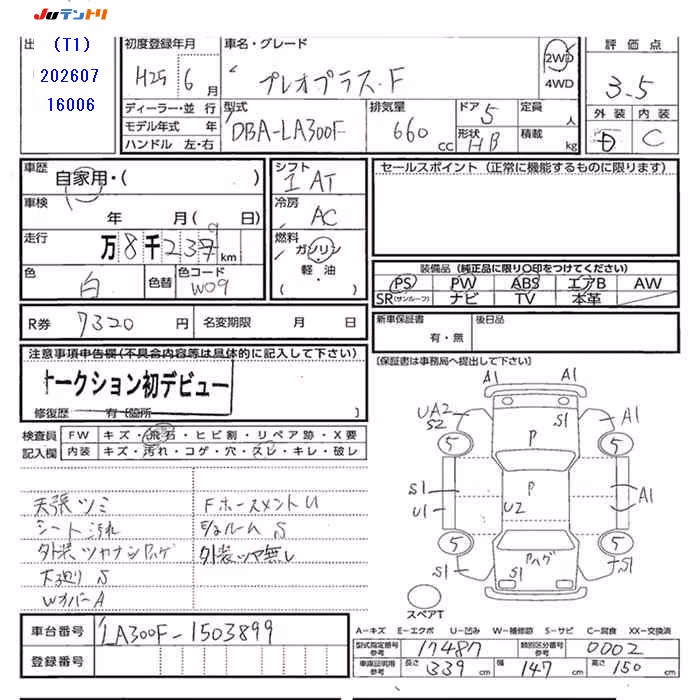 JUテントリ
出
(T1)
202607
16006
初度登録年月
H25 6 月
車名・グレード
プレオプラス・F
2WD
4WD
評価点
3.5
ディーラー・並 行
モデル年式 年
ハンドル 左・右
型式
DBA-LA300F
排気量
660 cc
ドア 5
形状 HB
定員 人
積載 kg
外装 内装
D C
車歴
自家用・( )
車検
年 月( 日)
走行
万 8 千 237 km
色
白
色替
色コード
W09
シフト
I AT
冷房
AC
燃料
ガソリン
軽・油
( )
セールスポイント (正常に機能するものに限ります)
装備品 (純正品に限り○印をつけてください)
PS PW ABS エアB AW
SR(サンルーフ) ナビ TV 本革
R券 7320 円 名変期限 月 日
新車保証書
有・無
後日品
(保証書は事務局へ提出して下さい)
注意事項申告欄(不具合内容等は具体的に記入して下さい)
オークション初デビュー
修復歴 有(箇所 )
検査員
記入欄
FW キズ・飛石・ヒビ割・リペア跡・X要
内装 キズ・汚れ・コゲ・穴・スレ・キレ・破レ
天張ツミ
シート汚れ
外装ツヤナシハゲ
下廻りS
WカバーA
FホースメントU
外装ツヤ無し
A1 A1
UA2
S2
S1
A1
5 5
P
S1
U1
P
U2
A1
5 5
Pハゲ
S1
S1
S1
スペアT
車台番号 LA300F-1503899
登録番号
A-キズ E-エクボ U-凹み W-補修跡 S-サビ C-腐食 XX-交換済
型式指定番号
参考
17487
類別区分番号
参考
0002
車庫証明用
参考
長さ 339 cm 幅 147 cm 高さ 150 cm